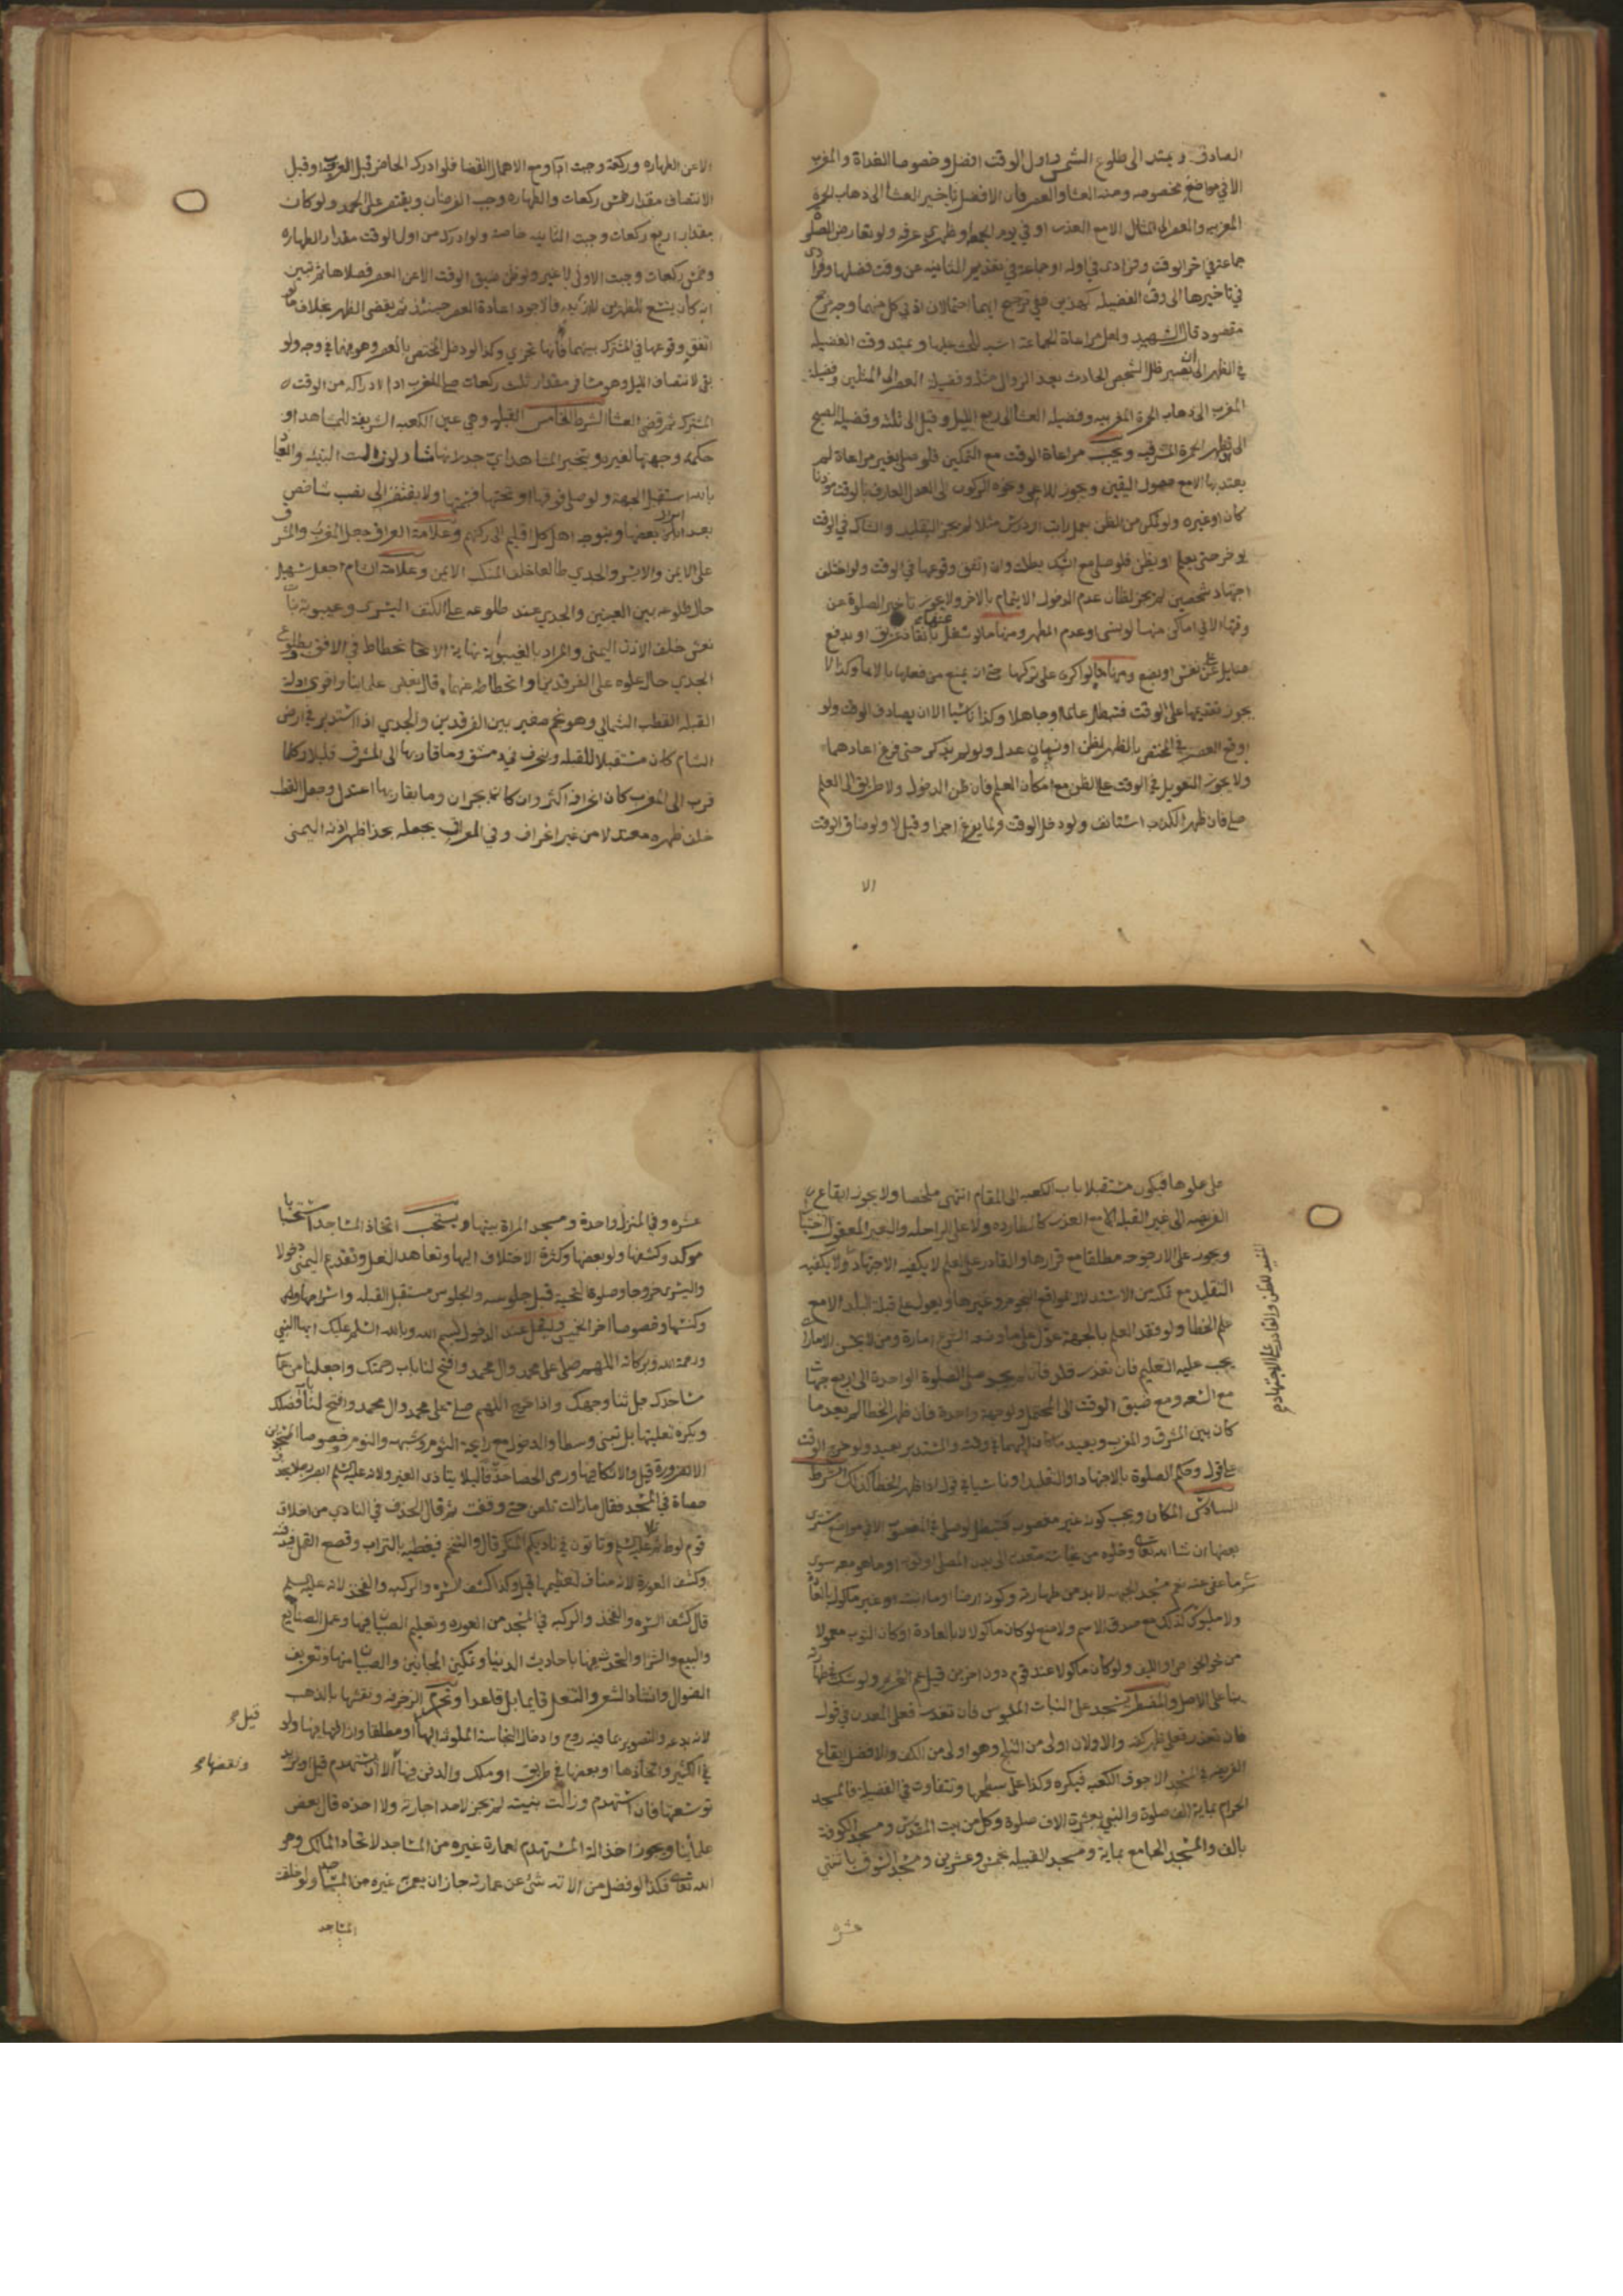 الصادق ويمتد الى طلوع الشمس واول الوقت افضل وخصوصا الغداة والمغرب
الا في مواضع مخصوصه ومنه العشا والعصر فان الافضل تاخير العشا الى ذهاب الحمرة
المغربيه والعصر الى المثال الا مع العذر او في يوم الجمعة او ظهري عرفه ولو تعارض الصلوة
جماعة في اخر الوقت وفرادى في اوله او جماعة في تقديم الثانيه عن وقت فضلها وفرادى
في تاخيرها الى وقت الفضيله كهذين ففي ترجيح ايهما احتمالان اذ في كل منهما وجه ترجيح
مقصود قال الشهيد ولعل مراعاة الجماعة اشبه للحث عليها ويمتد وقت الفضيله
في الظهر الى ان يصير ظل الشخص الحادث بعد الزوال مثله وفضيلة العصر الى المثلين وفضيلة
المغرب الى ذهاب الحمرة المغربيه وفضيله العشا الى ربع الليل وقيل الى ثلثه وفضيلة الصبح
الى ان تظهر الحمرة المشرقيه ويجب مراعاة الوقت مع التمكين فلو صلى بغير مراعاة لم
يعتد بها الا مع حصول اليقين ويجوز للاعمى ونحوه الركون الى العدل العارف بالوقت موذنا
كان او غيره ولو تمكن من الظن بعمل راتب او درس مثلا لم يجز التقليد والشاك في الوقت
يوخر حتى يعلم او يظن فلو صلى مع الشك بطلت وان اتفق وقوعها في الوقت ولو اختلف
اجتهاد شخصين لم يجز لظان عدم الدخول الايتمام بالاخر ولا يجوز تاخير الصلوة عن
وقتها الا في اماكن منها لو نسى او عدم المطهر ومنها ما لو شغل عنها بانقاذ غريق او بدفع
صايل عن نفس او بضع ومنها ما لو اكره على تركها حتى ان يمنع من فعلها بالايما وكذا لا
يجوز تقديمها على الوقت فتبطل عالما وجاهلا وكذا ناسيا الا ان يصادف الوقت ولو
اوقع العصر في المختص بالظهر لظن او نسيان عدل ولو لم يذكر حتى فرغ اعادهما
ولا يجوز التعويل في الوقت على الظن مع امكان العلم فان ظن الدخول ولا طريق الى العلم
صلى فان ظهر الكذب استانف ولو دخل الوقت ولما يفرغ اجزا وقيل لا ولو ضاق الوقت
الا
الا عن الطهاره وركعة وجبت ادا ومع الاهمال القضا فلو ادرك الحاضر قبل الغروب او قبل
الانتصاف مقدار خمس ركعات والطهاره وجب الفرضان ويقتصر على الحمد ولو كان
بمقدار اربع ركعات وجبت الثانيه خاصة ولو ادرك من اول الوقت مقدار الطهاره
وخمس ركعات وجبت الاولى لا غير ولو ظن ضيق الوقت الا عن العصر فصلاها ثم تبين
انه كان يتسع للظهرين فالاجود اعادة العصر حينئذ ثم يقضى الظهر بخلاف ما لو
اتفق وقوعها في المشترك بينهما فانها تجزي وكذا لو دخل المختص بالعصر وهو فيها في وجه ولو
بقى لانتصاف الليل وهو مسافر مقدار ثلث ركعات صلى المغرب ادا لادراكه من الوقت
المشترك ثم قضى العشا الشرط الخامس القبله وهي عين الكعبه الشريفة للمشاهد او
حكمه وجهتها لغيره ويتخير المشاهد اي جدرانها شا ولو زالت البنيه والعياذ
بالله استقبل الجهة ولو صلى فوقها او تحتها فجهتها ولا يفتقر الى نصب شاخص
بعد ابراز بعضها ويتوجه اهل كل اقليم الى ركنهم وعلامة العراق جعل المغرب والمشرق
على الايمن والايسر والجدي طالعا خلف المنكب الايمن وعلامة الشام جعل سهيل
حال طلوعه بين العينين والجدي عند طلوعه على الكتف اليسرى وغيبوبة بنات
نعش خلف الاذن اليمنى والمراد بالغيبوبة نهاية الانحطاط في الافق وبطلوع
الجدي حال علوه على الفرقدين وانحطاطه عنهما قال بعض علمائنا واقوى ادلة
القبله القطب الشمالي وهو نجم صغير بين الفرقدين والجدي اذا استدبر في ارض
الشام كان مستقبلا للقبله وينحرف في دمشق وما قاربها الى المشرق قليلا وكلما
قرب الى المغرب كان انحرافه اكثر وان كان بحران وما يقاربها اعتدل وجعل القطب
خلف ظهره معتدلا من غير انحراف وفي العراق يجعله بحذا ظهر اذنه اليمنى
على علوها فيكون مستقبلا باب الكعبه الى المقام انتهى ملخصا ولا يجوز ايقاع
الفريضه الى غير القبله الا مع العذر كالمطارده ولا على الراحله والبعير المعقول اختيارا
ويجوز على الارجوحه مطلقا مع قرارها والقادر على العلم لا يكفيه الاجتهاد ولا يكفيه
التقليد مع تمكنه من الاستدلال بمواقع النجوم وغيرها ويعول على قبلة البلد الا مع
علم الخطا ولو فقد العلم بالجهة عول على ما وضعه الشرع امارة ومن لا يحسن الامارات
يجب عليه التعليم فان تعذر قلد فان لم يجد صلى الصلوة الواحدة الى اربع جهات
مع السعه ومع ضيق الوقت الى المحتمل ولو جهة واحدة فان ظهر الخطا لم يعد ما
كان بين المشرق والمغرب ويعيد ما كان اليهما في وقته والمستدبر يعيد ولو خرج الوقت
على قول وحكم الصلوة بالاجتهاد او التقليد او ناسيا في قول اذا ظهر الخطا كذلك الشرط
السادس المكان ويجب كونه غير مغصوب فتبطل لو صلى في المغصوب الا في مواضع سترى
بعضها ان شا الله تعالى وخلوه من نجاسة متعديه الى بدن المصلى او ثوبه او ما هو معه سوى
ما عفى عنه نعم مسجد الجبهه لا بد من طهارته وكونه ارضا او ما انبتته غير ماكول بالعادة
ولا ملبوس كذلك مع صدق الاسم ولا منع لو كان ماكولا لا بالعادة او كان الثوب معمولا
من نحو الخوص او الليف ولو كان ماكولا عند قوم دون اخرين قيل عم التحريم ولو شك في طهارته
بنا على الاصل والمضطر يسجد على النبات الملبوس فان تعذر فعلى المعدن في قول
فان تعذر فعلى ظهر كفه والاولان اولى من الثلج وهو اولى من الكف والافضل ايقاع
الفريضه في المسجد الا جوف الكعبه فيكره وكذا على سطحها وتتفاوت في الفضيلة فالمسجد
الحرام بماية الف صلوة والنبي بعشرة الاف صلوة وكل من بيت المقدس ومسجد الكوفة
بالف والمسجد الجامع بماية ومسجد القبيله بخمس وعشرين ومسجد السوق باثنتى
عشره
عشره وفي المنزل واحدة ومسجد المراة بيتها ويستحب اتخاذ المساجد استحبابا
موكدا وكشفها ولو بعضها وكثرة الاختلاف اليها وتعاهد النعل وتقديم اليمنى دخولا
واليسرى خروجا وصلوة التحية قبل جلوسه والجلوس مستقبل القبله واسراجها
وكنسها وخصوصا اخر الخميس وليقل عند الدخول بسم الله وبالله السلام عليك ايها النبي
ورحمة الله وبركاته اللهم صل على محمد وال محمد وافتح لنا باب رحمتك واجعلنا من عمار
مساجدك جل ثنا وجهك واذا خرج اللهم صل على محمد وال محمد وافتح لنا باب فضلك
ويكره تعليتها بل تبنى وسطا والدخول مع رايحة الثوم وشبهه والنوم خصوصا المسجدين
الا لضرورة قيل والاتكا فيها ورمى الحصا حذفا ليلا يتاذى الغير ولانه عليه السلم ابصر رجلا يحذف
حصاة في المسجد فقال ما زالت تلعن حتى وقعت ثم قال الحذف في النادي من اخلاق
قوم لوط ثم تلا عليه السلم وتاتون في ناديكم المنكر قال والتنخم فيغطيه بالتراب وقصع القمل فيدفنه
وكشف العورة لانه مناف لتعظيمها قيل وكذا كشف السره والركبه والفخذ لانه عليه السلم
قال كشف السره والفخذ والركبه في المسجد من العوره وتعليم الصبيان فيها وعمل الصنايع
والبيع والشرا والتحدث فيها باحاديث الدنيا وتمكين المجانين والصبيان منها وتعريف
الضوال وانشاد الشعر والتنعل قايما بل قاعدا وتحرم الزخرفه ونقشها بالذهب
لانه بدعه والتصوير بما فيه روح وادخال النجاسة الملوثه اليها او مطلقا وازالتها فيها ولو
في الكثير واتخاذها او بعضها في طريق او ملك والدفن فيها الا ان تستهدم قيل او يريد
توسعها فان استهدم وزالت بنيته لم يجز لاحد اجارته ولا اخذه قال بعض
علمائنا ويجوز اخذ الة المستهدم لعمارة غيره من المساجد لاتحاد المالك وهو
الله تعالى فكذا لو فضل من الاته شئ عن عمارته جاز ان يعمر به غيره من المساجد
قيل
ونقضها
المساجد